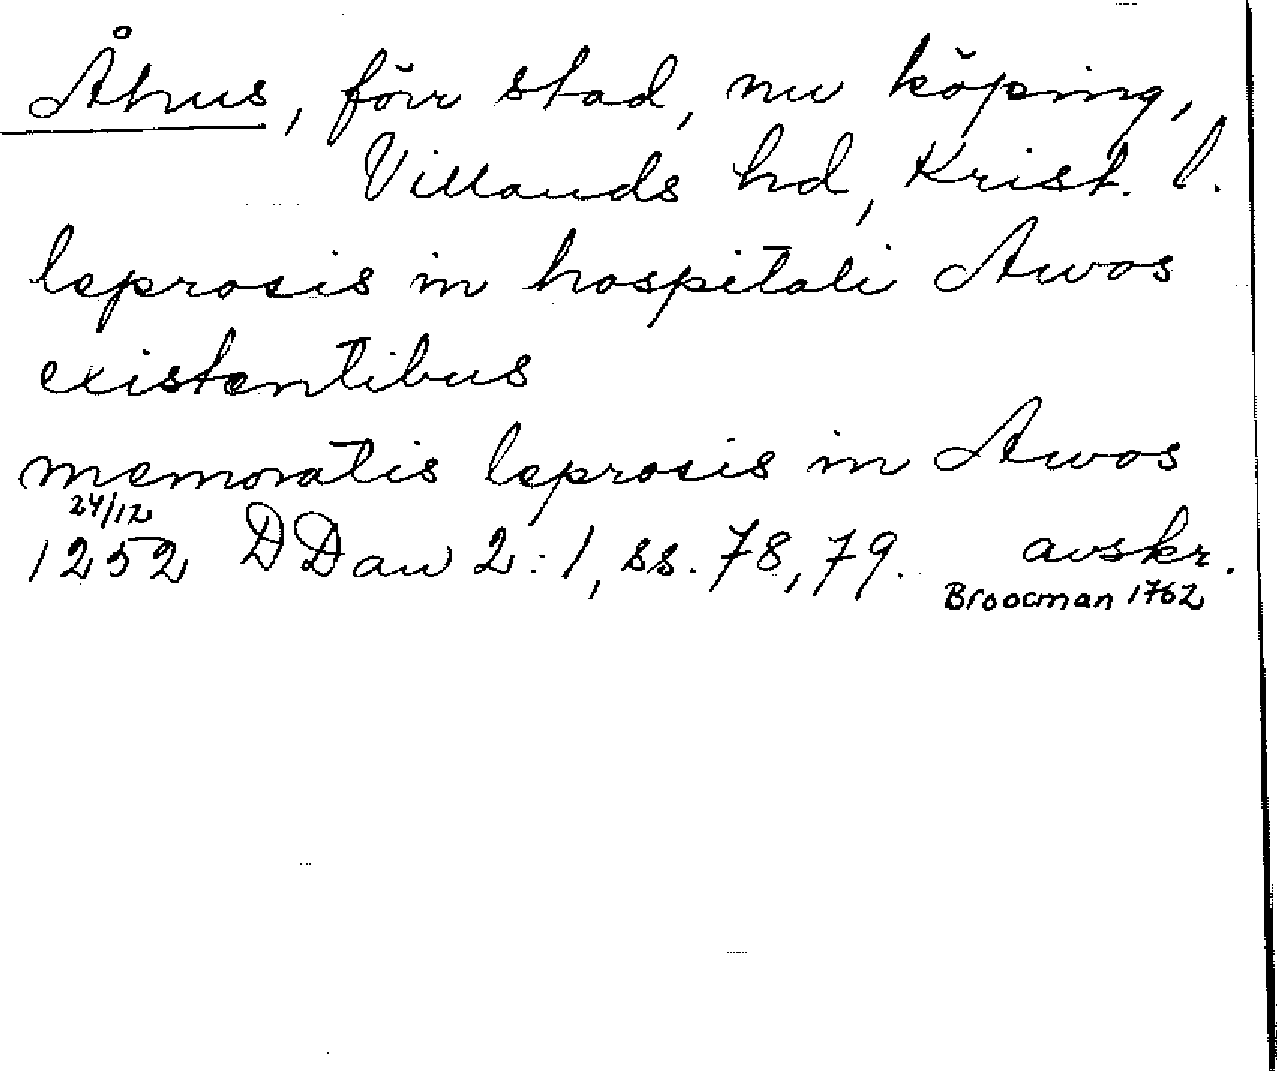 Åhus, förr stad, nu köping,
Villands hd, Krist. l.
leprosis in hospitali Awos
existentibus
memoratis leprosis in Awos
24/12
1252 DDan 2:1, ss. 78, 79. avskr.
Broocman 1762